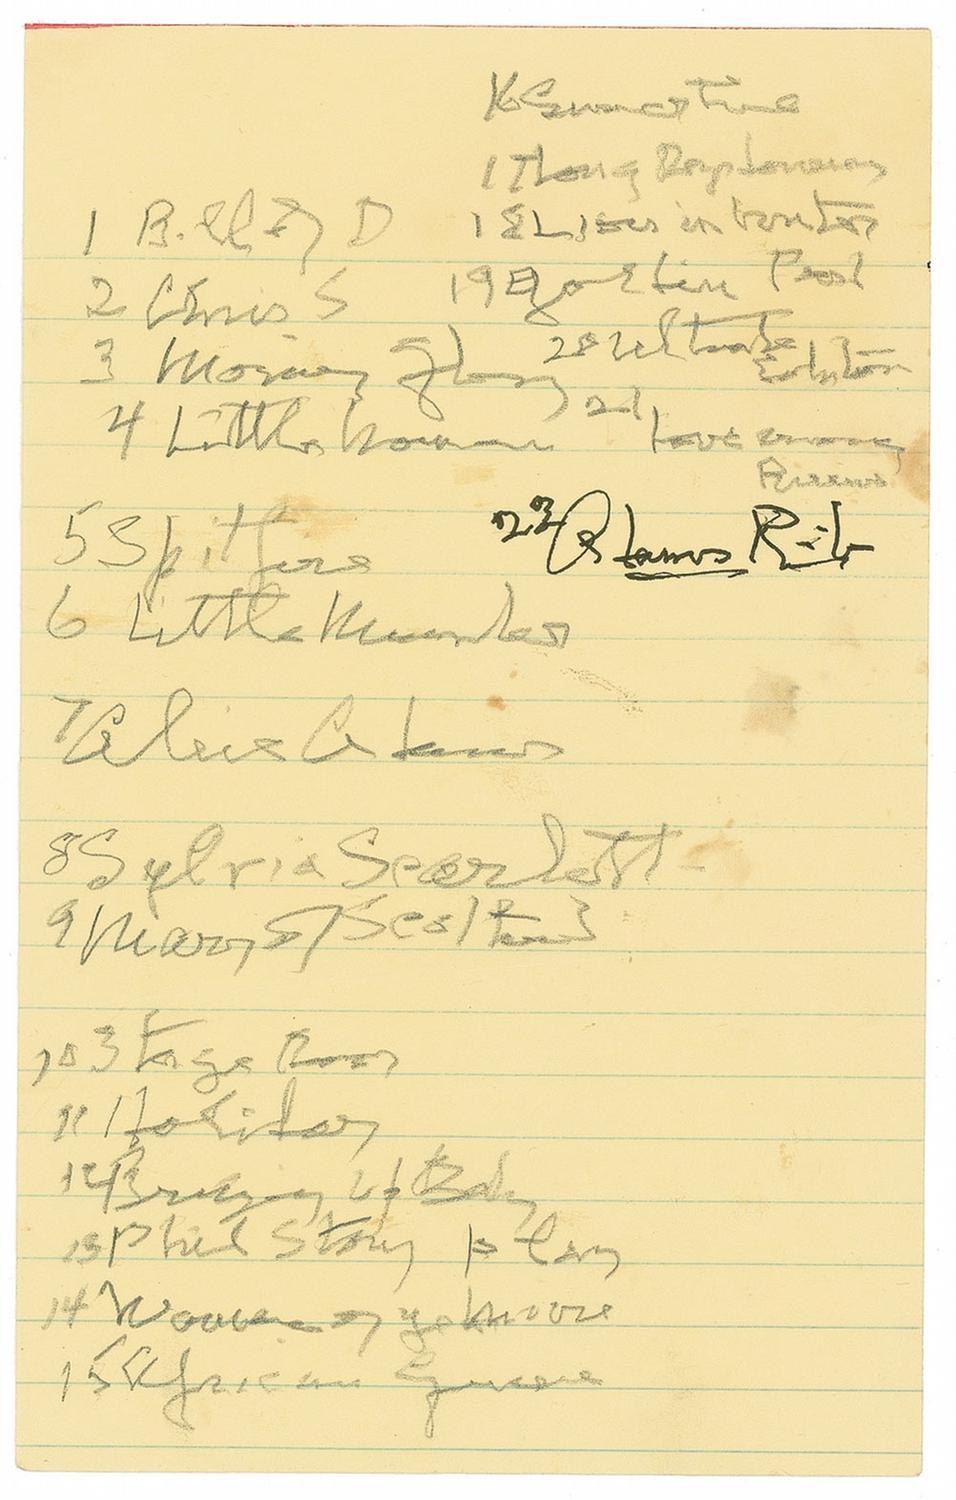 1 Bill of D
2 Chris S
3 Morning Glory
4 Little Women
5 Spitfire
6 Little Minister
7 Alice Adams
8 Sylvia Scarlett
9 Mary of Scotland
10 Stage Door
11 Holiday
12 Bringing Up Baby
13 Phil Story play
14 Woman of ye
15 African Queen
16 Summertime
17 Long Day
18 Lion in Winter
19
20
21 Love among
Ruins
22 Adams Rib